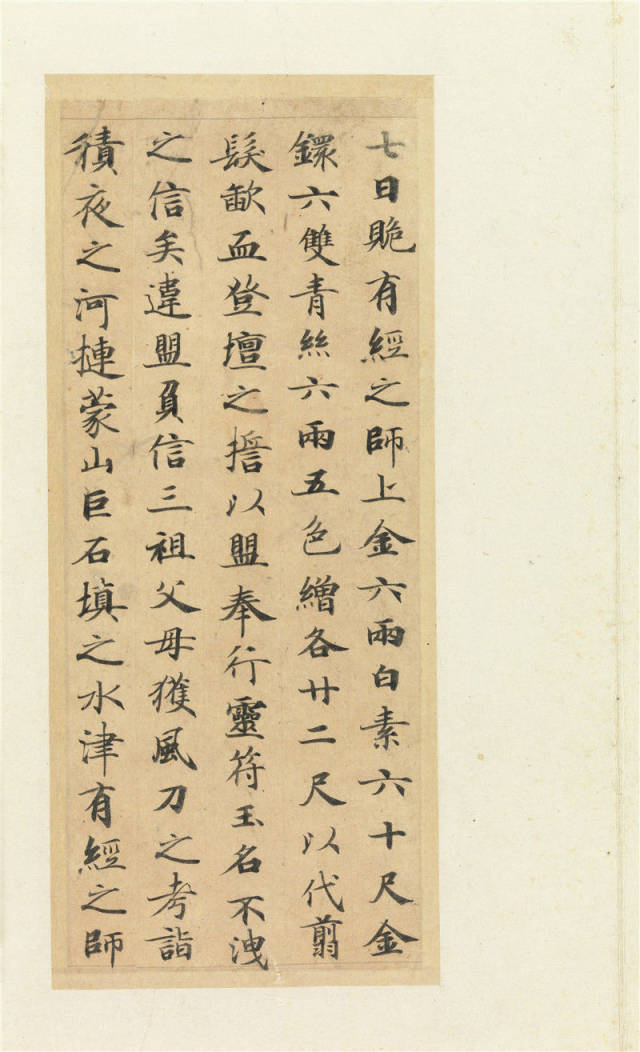 七日賍有經之師上金六兩白素六十尺金
鐶六雙青絲六兩五色繒各廿二尺以代翦
髮歃血登壇之擔以盟奉行靈符玉名不洩
之信矣違盟負信三祖父母獲風刀之考詣
積夜之河摙蒙山巨石填之水津有經之師